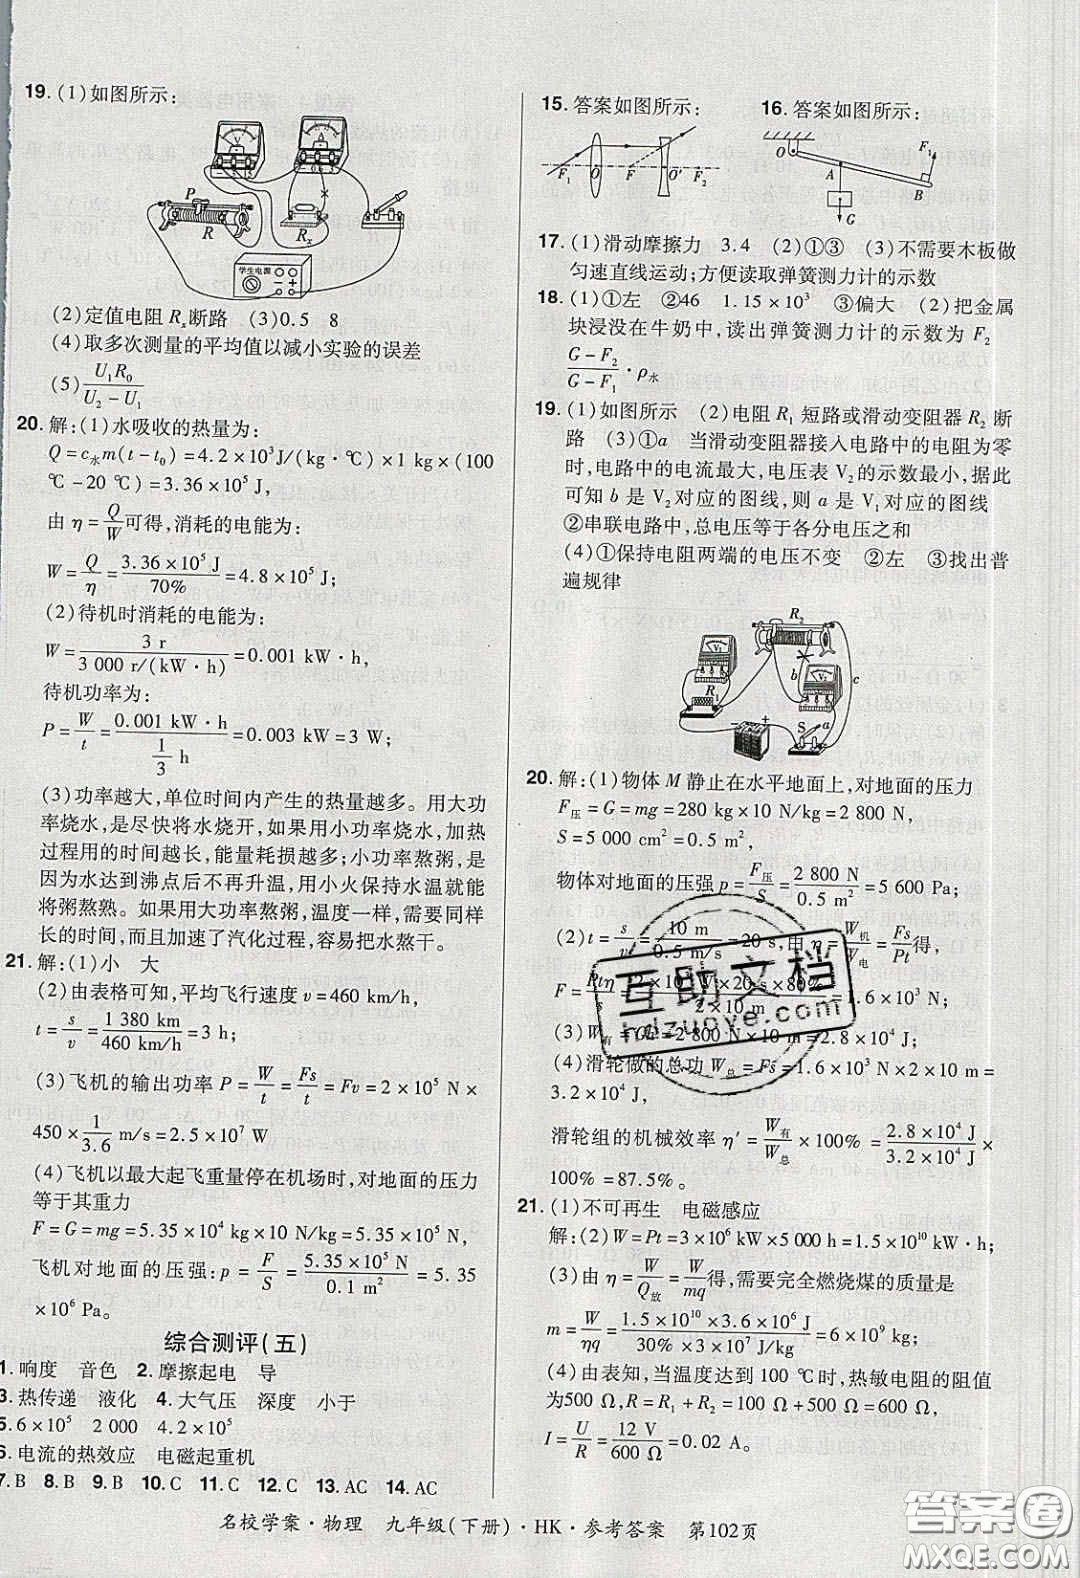 19. (1)如图所示:
V
A
P
R
Rx
学生电源
(2)定值电阻 Rx断路　(3)0.5　8
(4)取多次测量的平均值以减小实验的误差
(5) U₁R₀/(U₂-U₁)
20. 解:(1)水吸收的热量为:
Q=c水m(t-t₀)=4.2×10³J/(kg·℃)×1 kg×(100
℃-20 ℃)=3.36×10⁵ J,
由 η=Q/W可得,消耗的电能为:
W=Q/η=3.36×10⁵ J/70%=4.8×10⁵ J;
(2)待机时消耗的电能为:
W=3 r/3 000 r/(kW·h)=0.001 kW·h,
待机功率为:
P=W/t=0.001 kW·h/(1/3 h)=0.003 kW=3 W;
(3)功率越大,单位时间内产生的热量越多。用大功
率烧水,是尽快将水烧开,如果用小功率烧水,加热
过程用的时间越长,能量耗损越多;小功率熬粥,是
因为水达到沸点后不再升温,用小火保持水温就能
将粥熬熟。如果用大功率熬粥,温度一样,需要同样
长的时间,而且加速了汽化过程,容易把水熬干。
21. 解:(1)小　大
(2)由表格可知,平均飞行速度 v=460 km/h,
t=s/v=1 380 km/460 km/h=3 h;
(3)飞机的输出功率 P=W/t=Fs/t=Fv=2×10⁵ N×
450×1/3.6 m/s=2.5×10⁷ W
(4)飞机以最大起飞重量停在机场时,对地面的压力
等于其重力
F=G=mg=5.35×10⁴ kg×10 N/kg=5.35×10⁵ N
飞机对地面的压强:p=F/S=5.35×10⁵ N/0.1 m²=5.35
×10⁶ Pa。
综合测评(五)
1. 响度　音色　2. 摩擦起电　导
3. 热传递　液化　4. 大气压　深度　小于
5. 6×10⁵　2 000　4.2×10⁵
6. 电流的热效应　电磁起重机
7. B　8. B　9. B　10. C　11. C　12. C　13. AC　14. AC
15. 答案如图所示:　16. 答案如图所示:
F₁ O F O′ F₂
O A B F₁ G
17. (1)滑动摩擦力　3.4　(2)①③　(3)不需要木板做
匀速直线运动;方便读取弹簧测力计的示数
18. (1)①左　②46　1.15×10³　③偏大　(2)把金属
块浸没在牛奶中,读出弹簧测力计的示数为 F₂
(G-F₂)/(G-F₁)·ρ水
19. (1)如图所示　(2)电阻 R₁ 短路或滑动变阻器 R₂ 断
路　(3)①a　当滑动变阻器接入电路中的电阻为零
时,电路中的电流最大,电压表 V₂的示数最小,据此
可知 b 是 V₂对应的图线,则 a 是 V₁对应的图线
②串联电路中,总电压等于各分电压之和
(4)①保持电阻两端的电压不变　②左　③找出普
遍规律
R₂
V₁
b
V₂
c
R₁
S
a
20. 解:(1)物体 M 静止在水平地面上,对地面的压力
F压=G=mg=280 kg×10 N/kg=2 800 N,
S=5 000 cm²=0.5 m²,
物体对地面的压强 p=F压/S=2 800 N/0.5 m²=5 600 Pa;
(2)t=s/v=10 m/0.5 m/s=20 s,由 η=W机/W电=Fs/Pt得,
F=Ptη/s=×10² W×20 s×80%/10 m=1.6×10³ N;
(3)W有=Gh=2 800 N×10 m=2.8×10⁴ J,
(4)滑轮做的总功 W总=Fs=1.6×10³ N×2×10 m=
3.2×10⁴ J,
滑轮组的机械效率 η′=W有/W总×100%=2.8×10⁴ J/3.2×10⁴ J×
100%=87.5%。
21. (1)不可再生　电磁感应
解:(2)W=Pt=3×10⁶ kW×5 000 h=1.5×10¹⁰ kW·h;
(3)由 η=W/Q放=W/mq得,需要完全燃烧煤的质量是
m=W/ηq=1.5×10¹⁰×3.6×10⁶ J/30%×3×10⁷ J/kg=6×10⁹ kg;
(4)由表知,当温度达到 100 ℃时,热敏电阻的阻值
为500 Ω,R=R₁+R₂=100 Ω+500 Ω=600 Ω,
I=U/R=12 V/600 Ω=0.02 A。
互助文档
hdzuoye.com
名校学案·物理　九年级(下册)·HK·参考答案　第102页
答案圈
MXQE.COM